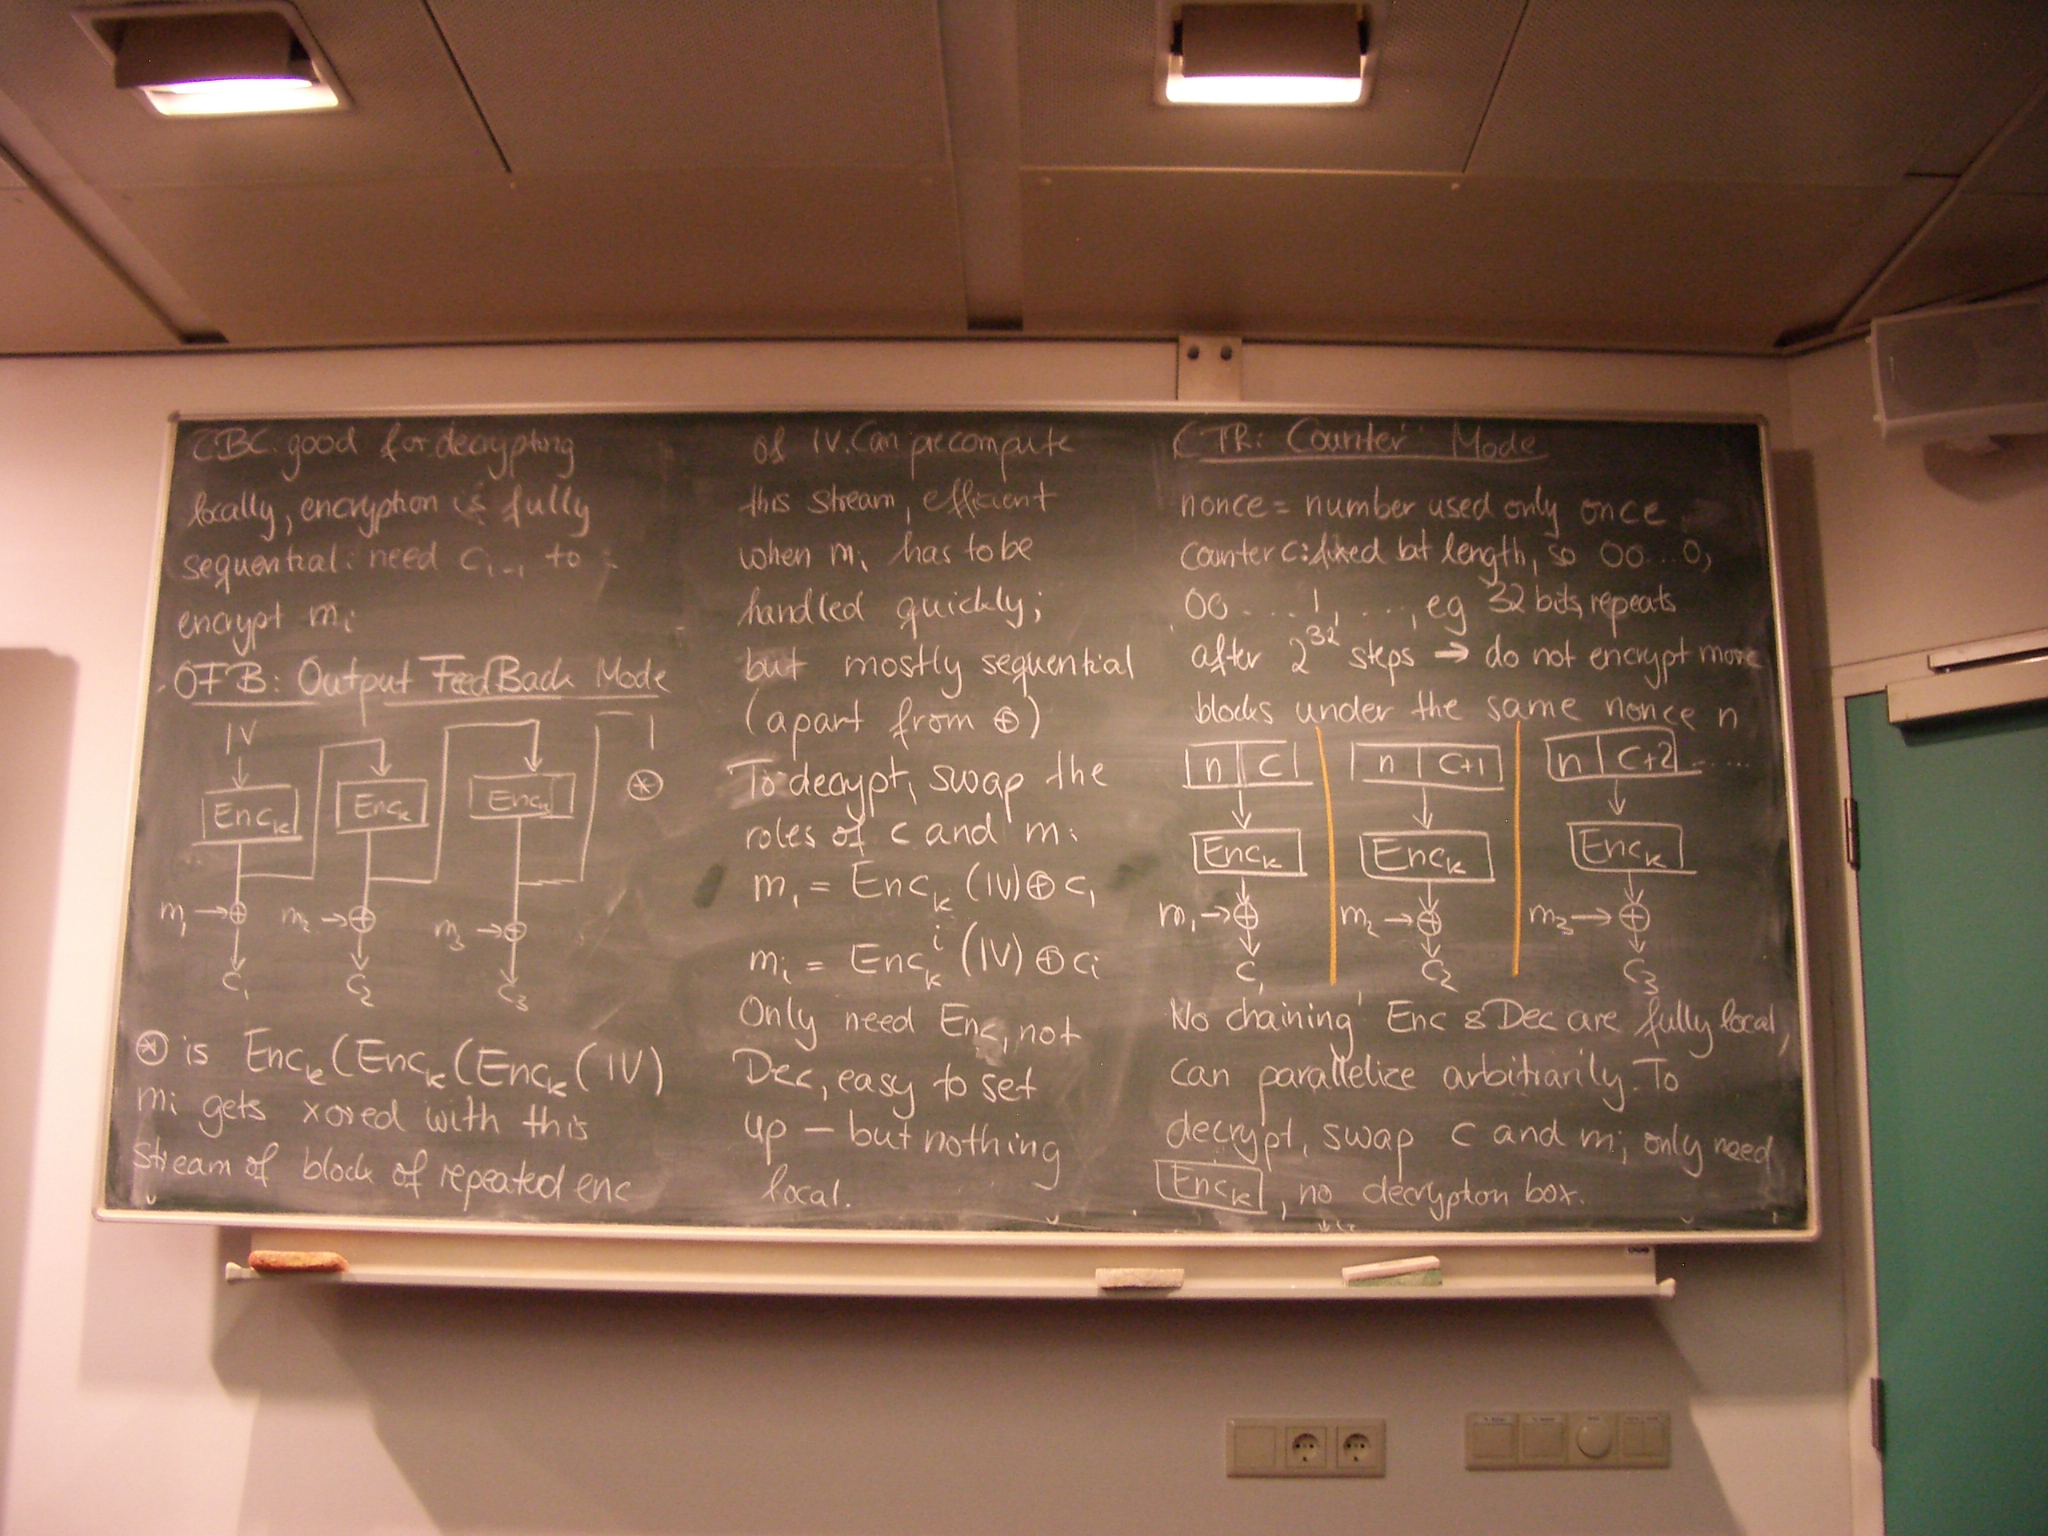 CBC: good for decrypting
locally, encryption is fully
sequential: need c_{i-1} to
encrypt m_i
OFB: Output FeedBack Mode
IV
Enc_k Enc_k Enc_k ⊛
m_1 → ⊕ m_2 → ⊕ m_3 → ⊕
C_1 C_2 C_3
⊛ is Enc_k(Enc_k(Enc_k(IV)
m_i gets xored with this
stream of block of repeated enc
of IV. Can precompute
this stream, efficient
when m_i has to be
handled quickly;
but mostly sequential
(apart from ⊕)
To decrypt, swap the
roles of c and m:
m_1 = Enc_k (IV) ⊕ c_1
m_i = Enc_k^i (IV) ⊕ c_i
Only need Enc, not
Dec, easy to set
up – but nothing
local.
CTR: Counter Mode
nonce = number used only once
counter c: fixed bit length, so 00...0,
00....1, ...., eg 32 bits, repeats
after 2^32 steps → do not encrypt more
blocks under the same nonce n
n | C n | C+1 n | C+2 .....
Enc_k Enc_k Enc_k
m_1 → ⊕ m_2 → ⊕ m_3 → ⊕
C_1 C_2 C_3
No chaining! Enc & Dec are fully local,
can parallelize arbitrarily. To
decrypt, swap c and m; only need
Enc_k, no decryption box.